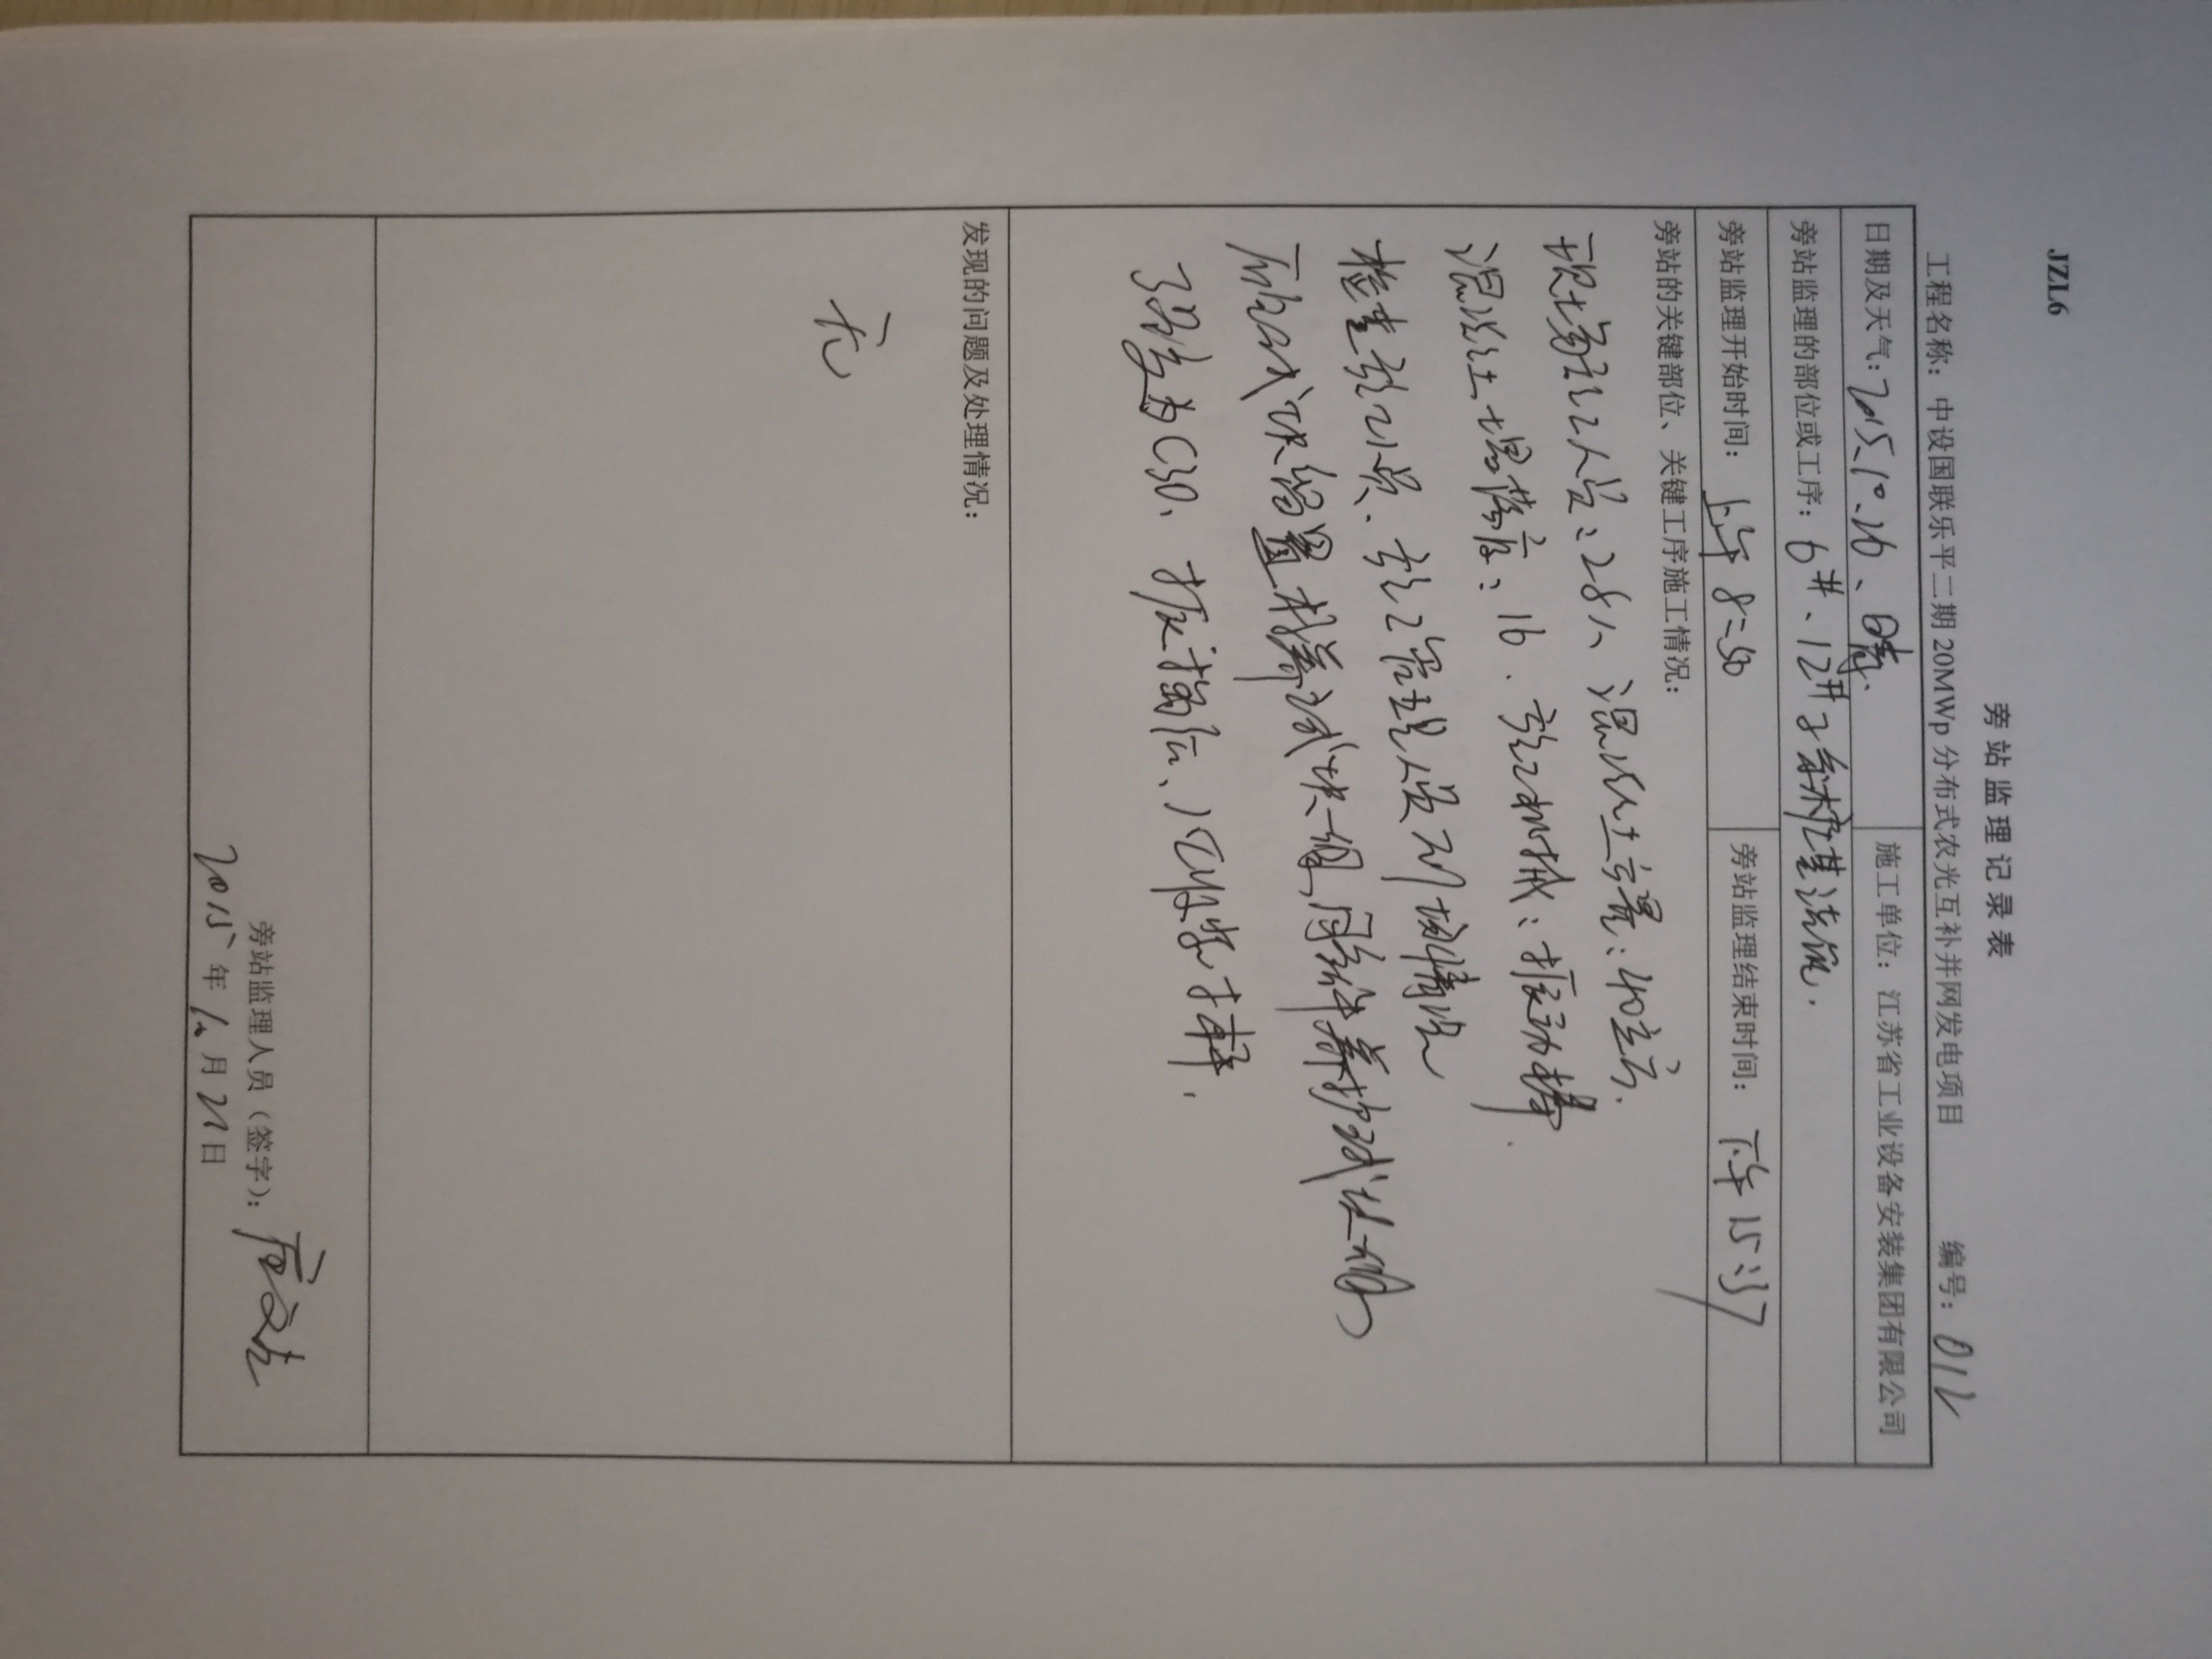 JZL6
旁站监理记录表
工程名称：中设国联乐平二期20MWp分布式农光互补并网发电项目 编号：012
日期及天气：2015.10.26、晴. 施工单位：江苏省工业设备安装集团有限公司
旁站监理的部位或工序：6#、12#子系 基浇筑.
旁站监理开始时间：上午8:50 旁站监理结束时间：下午15:37
旁站的关键部位、关键工序施工情况：
现场施工人员：28人 混凝土方量：40立方.
混凝土塌落度：16. 施工机械：振动棒.
检查施工员、施工管理人员到场情况
标养试块一组,同条件养护试块一组
强度为C30、
发现的问题及处理情况：
无
旁站监理人员（签字）：
2015年10月27日